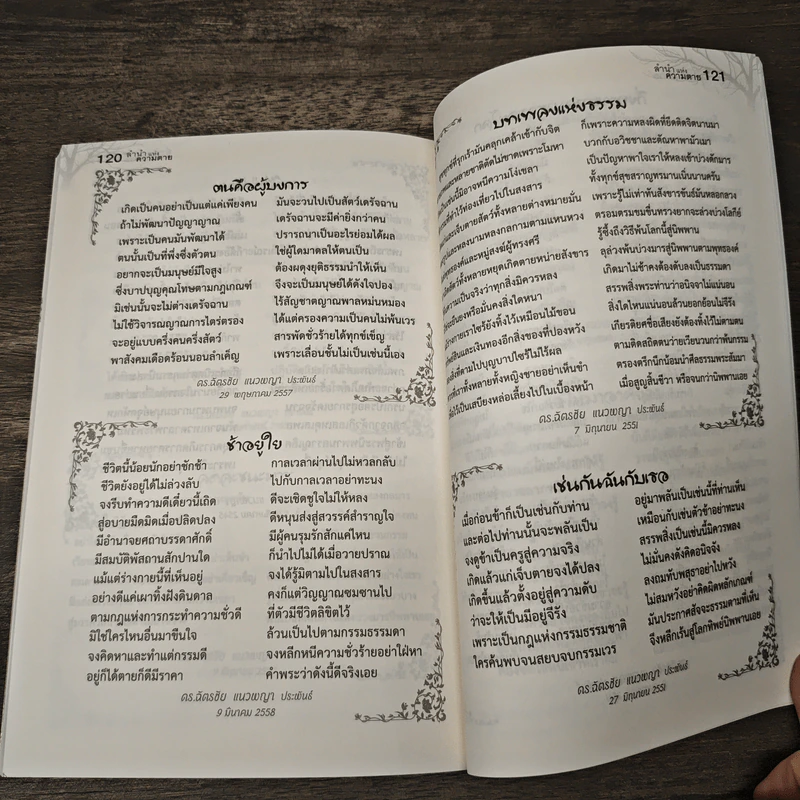 120 ลำนำแห่งความตาย
ตนคือผู้บงการ
เกิดเป็นคนอย่าเป็นแต่แค่เพียงคน มันจะวนไปเป็นสัตว์เดรัจฉาน
ถ้าไม่พัฒนาปัญญาญาณ เดรัจฉานจะมีค่ายิ่งกว่าคน
เพราะเป็นคนมันพัฒนาได้ ปรารถนาเป็นอะไรย่อมได้ผล
ตนนั้นเป็นที่พึ่งซึ่งตัวตน ใช่ผู้ใดมาดลให้ตนเป็น
อยากจะเป็นมนุษย์มีใจสูง ต้องผดุงยุติธรรมนำให้เห็น
ซึ่งบาปบุญคุณโทษตามกฎเกณฑ์ จึงจะเป็นมนุษย์ได้ดังใจปอง
มิเช่นนั้นจะไม่ต่างเดรัจฉาน ไร้สัญชาตญาณพาลหม่นหมอง
ไม่ใช้วิจารณญาณการไตร่ตรอง ได้แต่ครองความเป็นคนไม่พ้นเวร
จะอยู่แบบครึ่งคนครึ่งสัตว์ สารพัดชั่วร้ายได้ทุกข์เข็ญ
พาสังคมเดือดร้อนนอนลำเค็ญ เพราะเลื่อนชั้นไม่เป็นเช่นนี้เอง
ดร.ฉัตรชัย แนวพญา ประพันธ์
29 พฤษภาคม 2557
ช้าอยู่ใย
ชีวิตนี้น้อยนักอย่าชักช้า กาลเวลาผ่านไปไม่หวลกลับ
ชีวิตยังอยู่ได้ไม่ล่วงลับ ไปกับกาลเวลาอย่าทะนง
จงรีบทำความดีเดี๋ยวนี้เถิด ดีจะเชิดชูใจไม่ให้หลง
สู่อบายมืดมิดเมื่อปลิดปลง ดีหนุนส่งสู่สวรรค์สำราญใจ
มีอำนาจยศถาบรรดาศักดิ์ มีผู้คนรุมรักสักแค่ไหน
มีสมบัติพัสถานสักปานใด ก็นำไปไม่ได้เมื่อวายปราณ
แม้แต่ร่างกายนี้ที่เห็นอยู่ จงได้รู้มิตามไปในสงสาร
อย่างดีแค่เผาทิ้งฝังดินดาล คงก็แต่วิญญาณซมซานไป
ตามกฎแห่งการกระทำความชั่วดี ที่ตัวมีชีวิตลิขิตไว้
มิใช่ใครไหนอื่นมาขืนใจ ล้วนเป็นไปตามกรรมธรรมดา
จงคิดหาและทำแต่กรรมดี จงหลีกหนีความชั่วร้ายอย่าใฝ่หา
อยู่ก็ได้ตายก็ดีมีราคา คำพระว่าดังนี้ดีจริงเอย
ดร.ฉัตรชัย แนวพญา ประพันธ์
9 มีนาคม 2558
ลำนำแห่งความตาย 121
บทเพลงแห่งธรรม
ทุกข์ที่รุกเร้ามันคลุกเคล้าเข้ากับจิต ก็เพราะความหลงผิดที่ยึดติดจิตนานมา
หลายชาติตัดไม่ขาดเพราะโมหา บวกกับอวิชชาและตัณหาพามัวเมา
เช่นนี้มิอาจหนีความโง่เขลา เป็นปัญหาพาใจเราให้หลงเข้าบ่วงดักมาร
ทำไว้ท่องเที่ยวไปในสงสาร ทั้งทุกข์สุขสราญทรมานเนิ่นนานครัน
และเจ็บตายสัตว์ทั้งหลายต่างหมายมั่น เพราะรู้ไม่เท่าทันสังขารขันธ์มันหลอกลวง
และหลงนามหลงกลกามตามแหนหวง ตรอมตรมขมขื่นทรวงยากจะล่วงบ่วงโลกีย์
องค์และหมู่สงฆ์ผู้ทรงศรี รู้ซึ้งถึงวิธีพ้นโลกนี้สู่นิพพาน
สัตว์ทั้งหลายหยุดเกิดตายหน่ายสังขาร ลุล่วงพ้นบ่วงมารสู่นิพพานตามพุทธองค์
ความเป็นจริงว่าทุกสิ่งมิควรหลง เกิดมาไม่ช้าคงต้องดับลงเป็นธรรมดา
จะยืนยงหรือมั่นคงสิ่งใดหนา สรรพสิ่งพระท่านว่าอนิจจาไม่แน่นอน
ร่างกายเราไซร้ยังทิ้งไว้เหมือนไม้ขอน สิ่งใดไหนแน่นอนล้วนยอกย้อนไม่จีรัง
สินและเงินทองอีกสิ่งของที่ปองหวัง เกียรติยศชื่อเสียงยังต้องทิ้งไว้ไม่ตามตน
สิ่งที่ตามไปบุญบาปใช่ไร้ผล ตามติดสถิตตนว่ายเวียนวนกว่าพ้นกรรม
เราทั้งหลายทั้งหญิงชายอย่าเห็นขำ ตรองตรึกนึกน้อมนำศีลธรรมพระสัมมา
ไว้เป็นเสบียงหล่อเลี้ยงไปในเบื้องหน้า เมื่อสูญสิ้นชีวา หรือจนกว่านิพพานเอย
ดร.ฉัตรชัย แนวพญา ประพันธ์
7 มิถุนายน 2551
เช่นกันฉันกับเธอ
เมื่อก่อนข้าก็เป็นเช่นกับท่าน อยู่มาพลันเป็นเช่นนี้ที่ท่านเห็น
และต่อไปท่านนั้นจะพลันเป็น เหมือนกับเช่นตัวข้าอย่าทะนง
จงดูข้าเป็นครูสู่ความจริง สรรพสิ่งเป็นเช่นนี้มิควรหลง
เกิดแล้วแก่เจ็บตายจงได้ปลง ไม่มั่นคงดังคิดอนิจจัง
เกิดขึ้นแล้วตั้งอยู่สู่ความดับ ลงถมทับพสุธาอย่าไปหวัง
ว่าจะให้เป็นมีอยู่จีรัง ไม่สมหวังอย่าคิดผิดหลักเกณฑ์
เพราะเป็นกฎแห่งกรรมธรรมชาติ มันประกาศสัจจะธรรมตามที่เห็น
ใครค้นพบจนสยบจบกรรมเวร จึงหลีกเร้นสู่โลกทิพย์นิพพานเอย
ดร.ฉัตรชัย แนวพญา ประพันธ์
27 มิถุนายน 2551